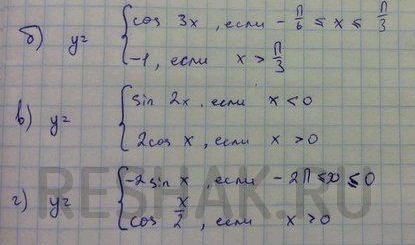 б) y = { cos 3x, если - π/6 ≤ x ≤ π/3
-1, если x > π/3
в) y = { sin 2x, если x < 0
2cos x, если x > 0
г) y = { -2sin x, если - 2π ≤ x ≤ 0
cos x/2, если x > 0
RESHAK.RU